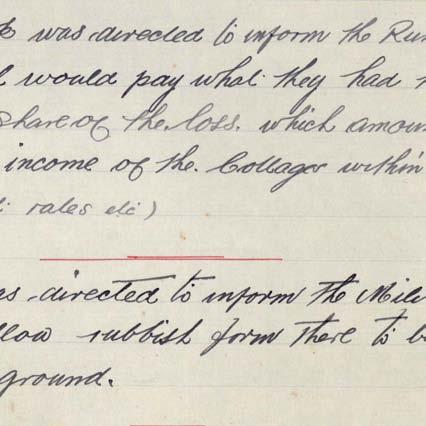 was directed to inform the Rur
would pay what they had
share of the loss. which amoun
income of the Cottages within
rates etc)
es directed to inform the Mili
llow rubbish form there to b
ground.